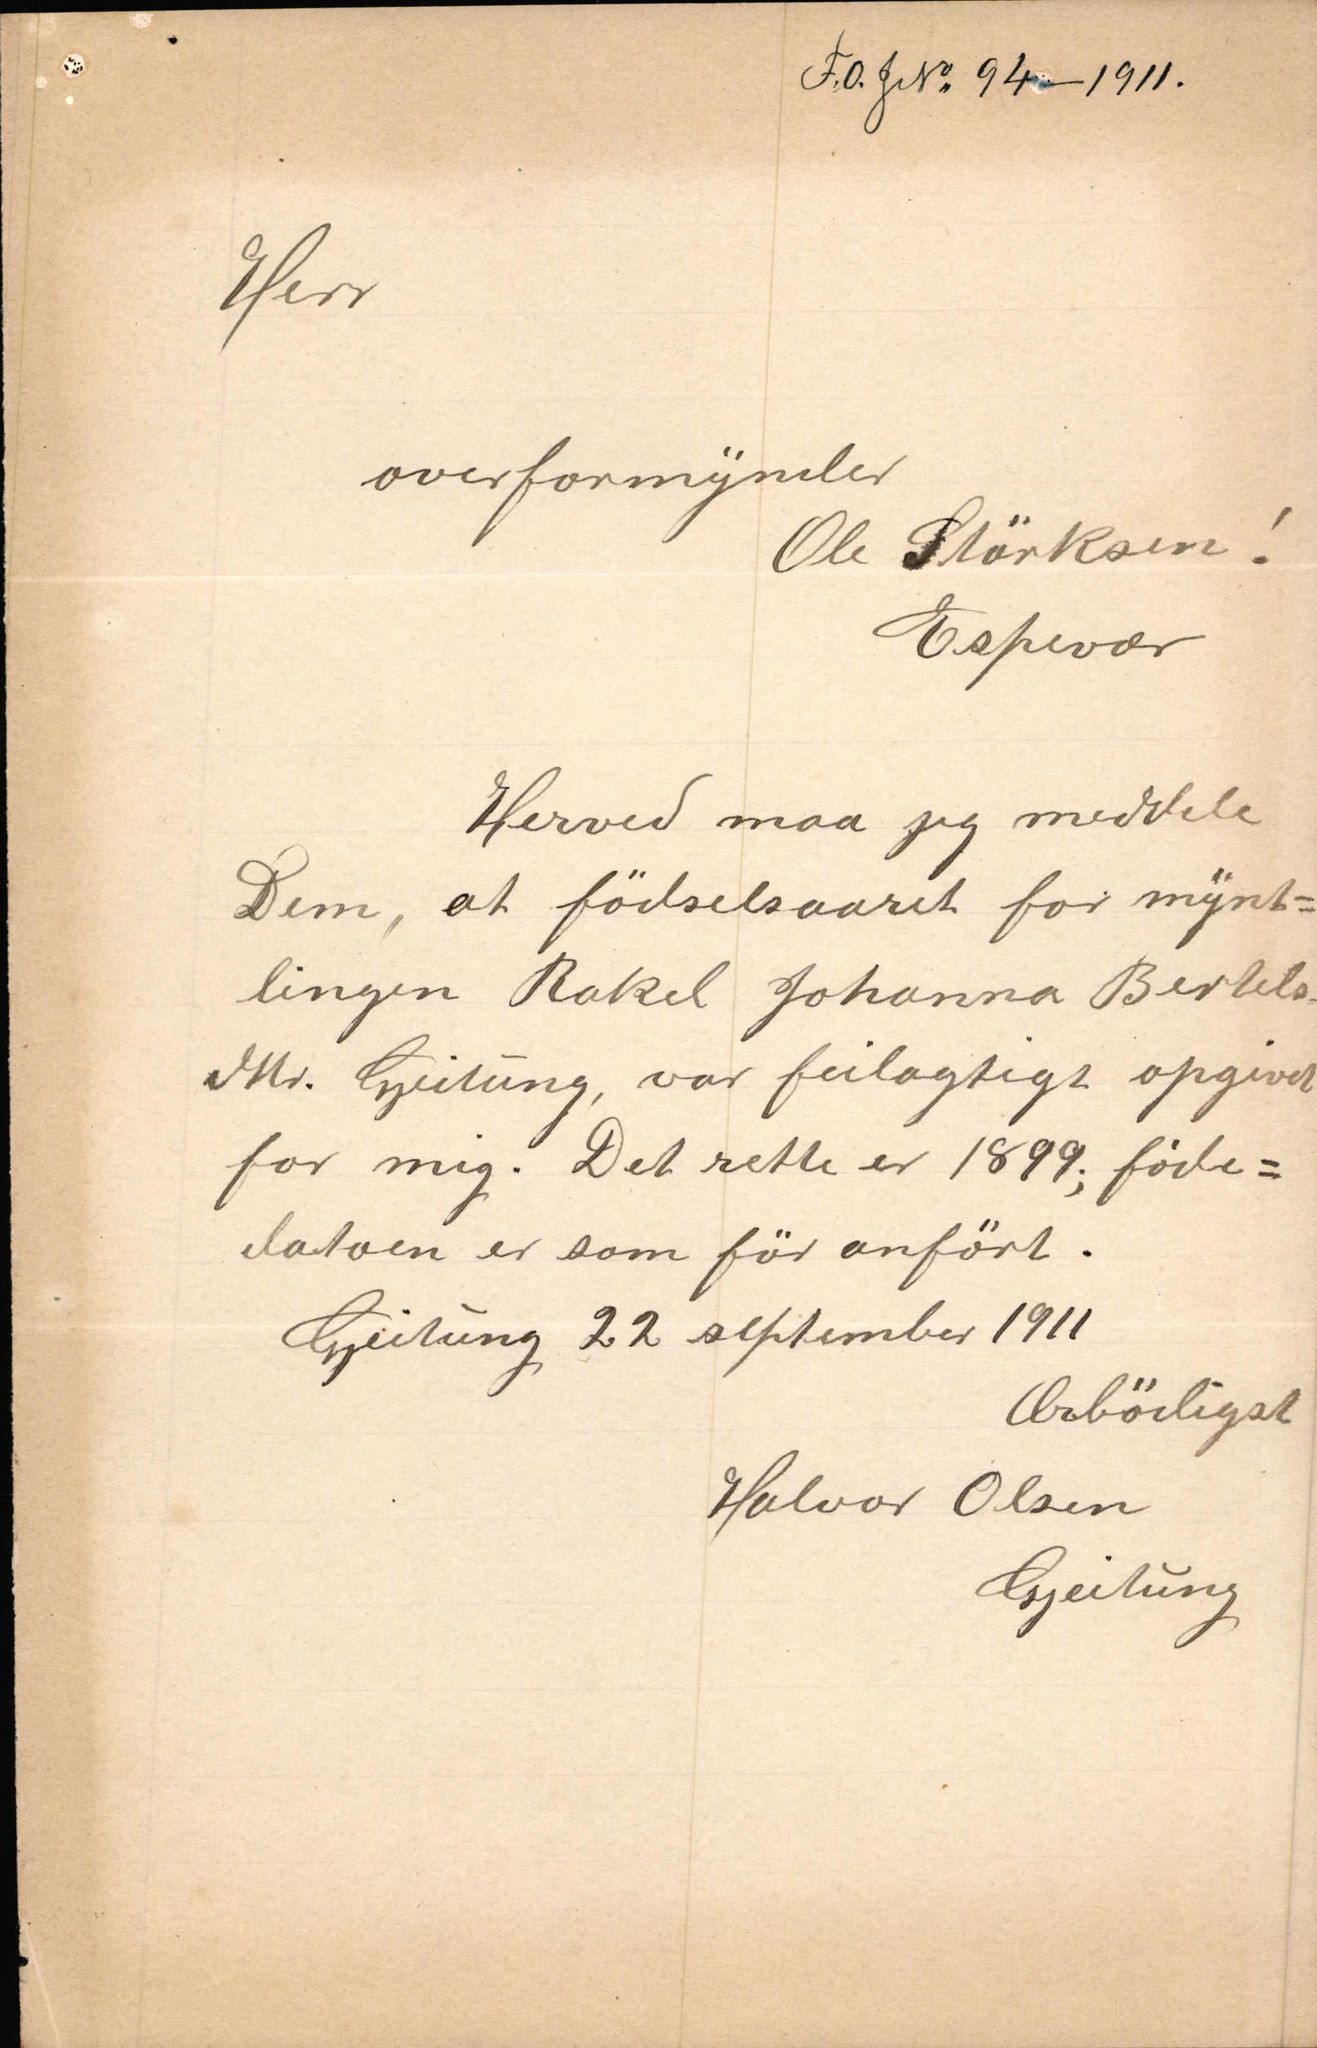 F.O. JNo. 94 – 1911.
Herr
overformÿnder
Ole Störksen!
Espevær
Herved maa jeg meddele
Dem, at födselsaaret for mÿnt=
lingen Rakel Johanna Bertels-
dtr. Gjeitung, var feilagtigt opgivet
for mig. Det rette er 1899; föde=
datoen er som för anfört.
Gjeitung 22 september 1911
Ærbödigst
Halvor Olsen
Gjeitung